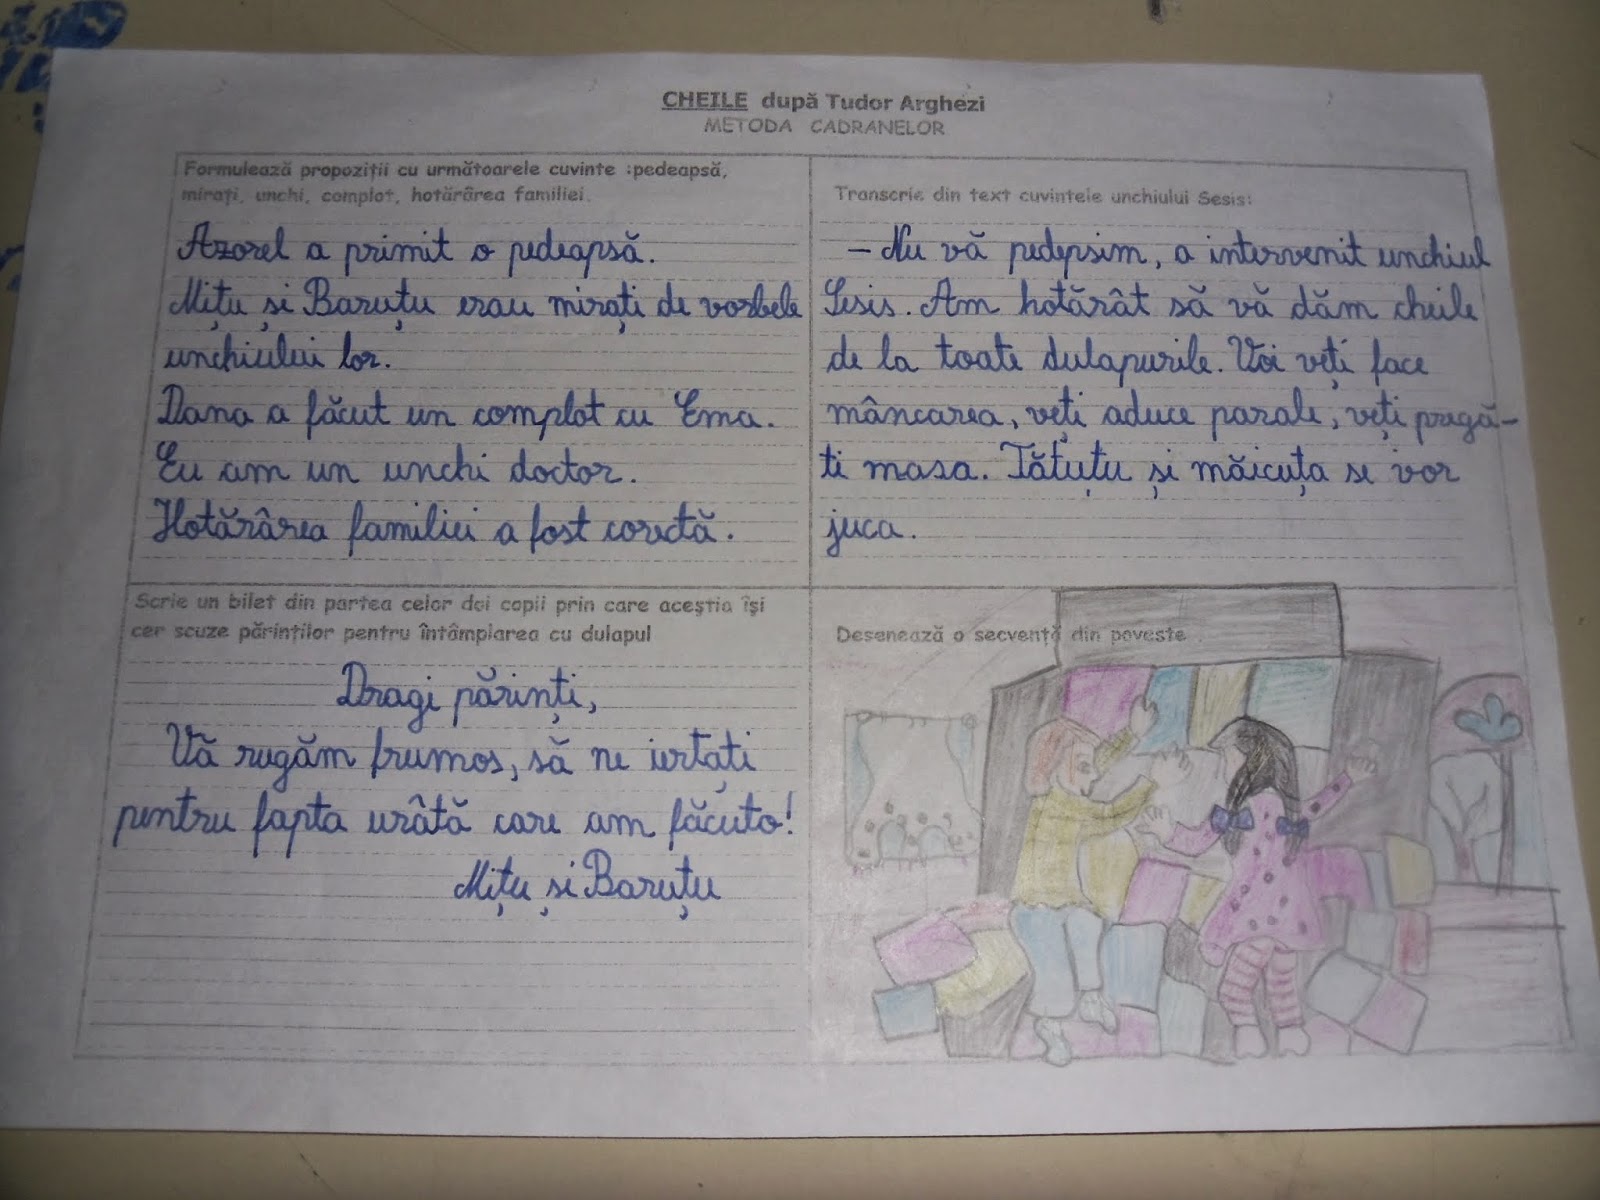 CHEILE după Tudor Arghezi
METODA CADRANELOR
Formulează propoziții cu următoarele cuvinte :pedeapsă,
mirați, unchi, complot, hotărârea familiei.
Azorel a primit o pedeapsă.
Mițu și Baruțu erau mirați de vorbele
unchiului lor.
Dana a făcut un complot cu Ema.
Eu am un unchi doctor.
Hotărârea familiei a fost corectă.
Transcrie din text cuvintele unchiului Sesis:
– Nu vă pedepsim, a intervenit unchiul
Sesis. Am hotărât să vă dăm cheile
de la toate dulapurile. Voi veți face
mâncarea, veți aduce parale, veți pregă-
ti masa. Tătuțu și măicuța se vor
juca.
Scrie un bilet din partea celor doi copii prin care aceștia își
cer scuze părinților pentru întâmplarea cu dulapul
Dragi părinți,
Vă rugăm frumos, să ne iertați
pentru fapta urâtă care am făcuto!
Mițu și Baruțu
Desenează o secvență din poveste .